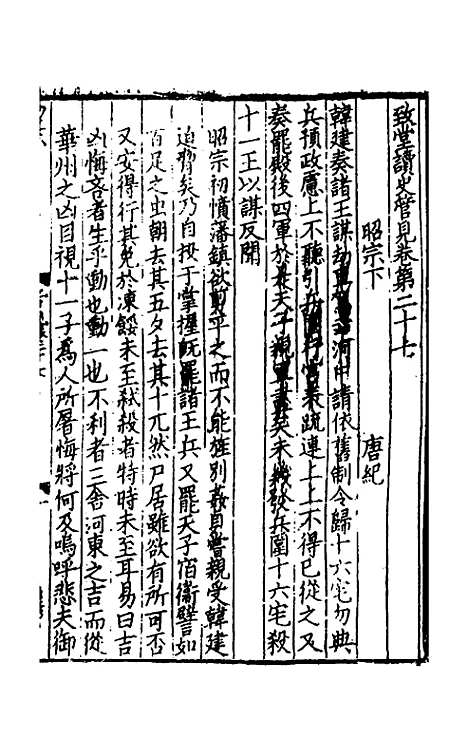 致堂讀史管見卷第二十七
昭宗下 唐紀
韓建奏諸王謀劫 河中請依舊制令歸十六宅勿典
兵預政慮上不聽引兵圍行宮表疏連上上不得已從之又
奏罷殿後四軍於是天子親軍盡矣未幾發兵圍十六宅殺
十一王以謀反聞
昭宗初憤藩鎮欲剪平之而不能旌別 親受韓建
迫脅矣乃自投于掌握旣罷諸王兵又罷天子宿衞譬如
百足之虫朝去其五夕去其十兀然尸居雖欲有所可否
又安得行其免於凍餒未至弑殺者特時未至耳易曰吉
凶悔吝者生乎動也動一也不利者三舍河東之吉而從
華州之凶目視十一子爲人所屠悔將何及嗚呼悲夫御